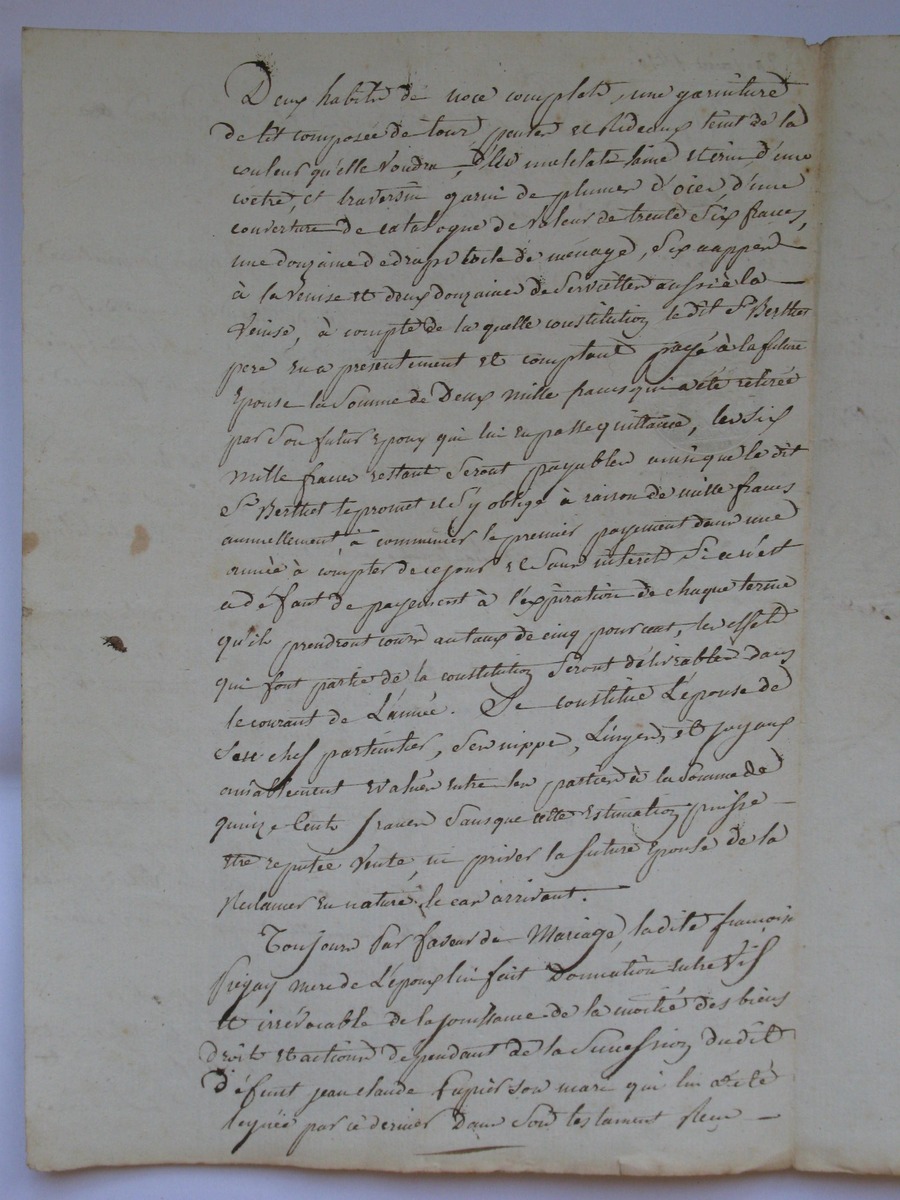 Deux habits de noce complets, une garniture
de lit composée de tour pentes et Rideaux teint de la
couleur qu'elle voudra, d'un matelats laine et crin, d'une
coetre, et traversin garni de plumes d'oier d'une
couverture de catalogue de valeur de trente Six francs,
une douzaine de draps toile de ménage, Six nappes
à la Venise et deux douzaines de Serviettes aussi à la
Venise, à compte de la quelle constitution le dit Sr Berthet
pere en a présentement et comptant payé à la future
Epouse la Somme de Deux mille francs qui a été retirée
par Son futur Epoux qui lui en passe quittance, les six
mille francs restant Seront payables ainsi que le dit
Sr Berthet le promet et S'y oblige à raison de mille francs
annuellement à commencer le premier payement dans une
année à compter de ce jour et Sans interet Si ce n'est
a défaut de payement à l'expiration de chaque terme
qu'ils prendront cours au taux de cinq pour cent, les effets
qui font partie de la constitution Seront délivrables dans
le courant de L'année. Se constitue L'épouse de
Son chef particulier, Ses nippes, Linges, et joyaux
amiablement évalués entre les parties à la Somme de
quinze Cents francs Sans que cette Estimation puisse
être reputée Vente, ni priver la future Epouse de la
Réclamer En nature le cas arrivant.
Toujours Par faveur de Mariage, ladite françoise
Prégay mere de L'époux lui fait Donnation entre Vifs
et irrévocable de la jouissance de la moitié des biens
Droits et actions dépendant de la Succession du dit
Défunt jean claude Lupier son mari qui lui a été
leguée par ce dernier Dans Son testament